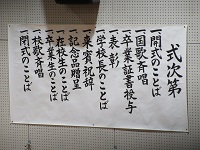 式次第
一開式のことば
一国歌斉唱
一卒業証書授与
一表彰
一学校長のことば
一来賓祝辞
一記念品贈呈
一在校生のことば
一卒業生のことば
一校歌斉唱
一閉式のことば